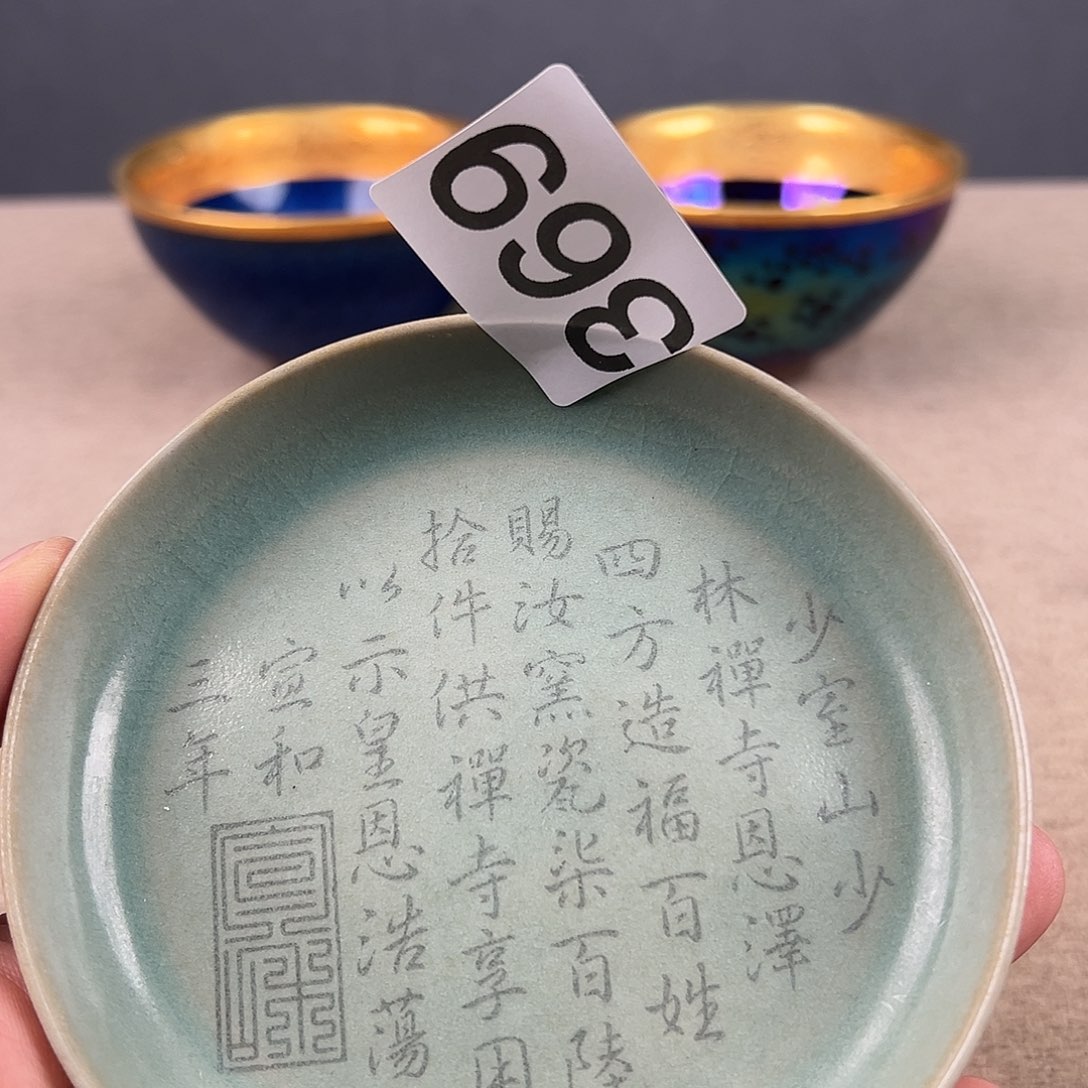 369
少室山少
林禪寺恩澤
四方造福百姓
賜汝窯瓷柒百陸
拾件供禪寺享用
以示皇恩浩蕩
宣和
三年